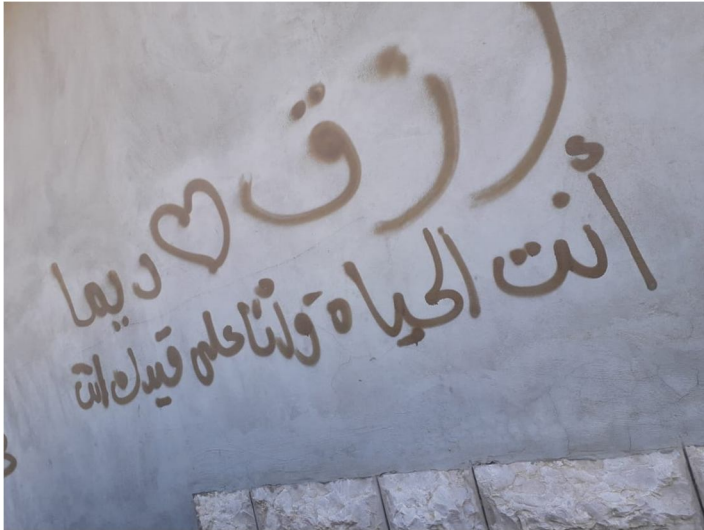 رزق ♡ ديما
أنت الحياه وأنا على قيدك انت